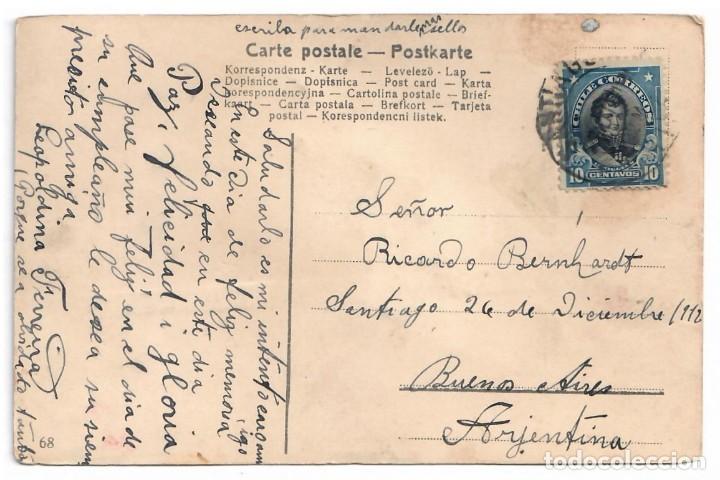 escriba para mandarle mas sellos
Carte postale — Postkarte
Korrespondenz - Karte — Levelező - Lap —
Dopisnice — Dopisnica — Post card — Karta
korespondencyjna — Cartolina postale — Brief-
kaart — Carta postala — Brefkort — Tarjeta
postal — Korespondencni listek.
CHILE CORREOS
10 CENTAVOS 10
Señor
Ricardo Bernhardt
Santiago 26 de Diciembre /112
Buenos Aires
Argentina
Saludarlo es mi intento
En este dia de feliz memoria
Deseando que en este dia
Paz, felicidad i gloria
Que pase mui feliz en el dia de
su cumpleaño le desea su siem
pre amiga
Leopoldina Ferreira
(Porque se a olvidado tanto
68
todocoleccion.net